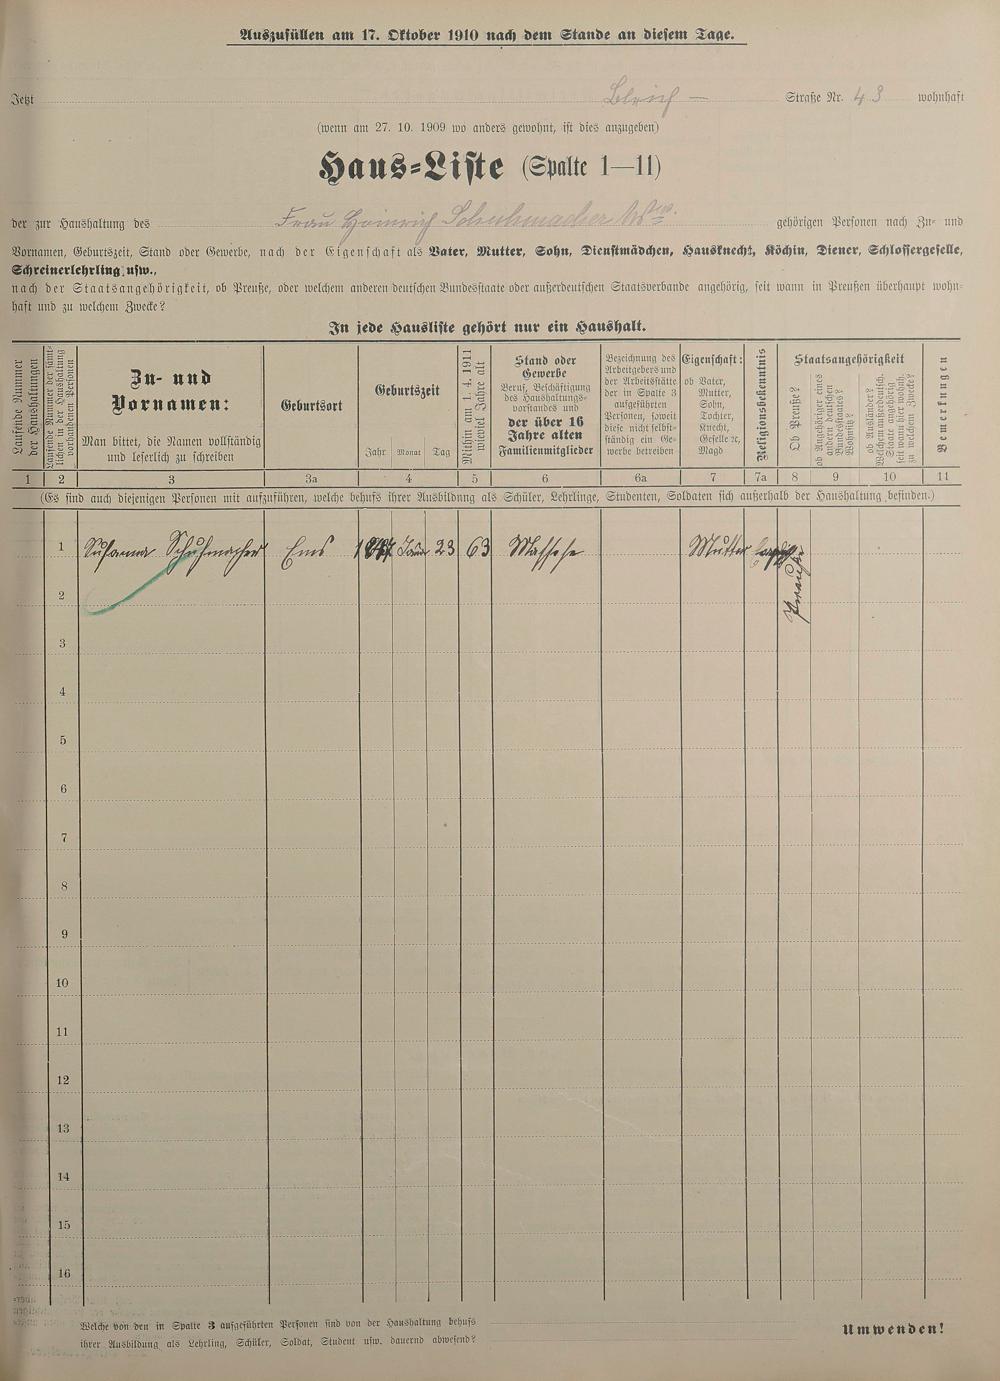 Auszufüllen am 17. Oktober 1910 nach dem Stande an diesem Tage.
Jetzt Bleich — Straße Nr. 43 wohnhaft
(wenn am 27. 10. 1909 wo anders gewohnt, ist dies anzugeben)
Haus-Liste (Spalte 1—11)
der zur Haushaltung des Frau Heinrich Schuhmacher Wwe. gehörigen Personen nach Zu- und
Vornamen, Geburtszeit, Stand oder Gewerbe, nach der Eigenschaft als Vater, Mutter, Sohn, Dienstmädchen, Hausknecht, Köchin, Diener, Schlossergeselle,
Schreinerlehrling usw.,
nach der Staatsangehörigkeit, ob Preuße, oder welchem anderen deutschen Bundesstaate oder außerdeutschen Staatsverbande angehörig, seit wann in Preußen überhaupt wohn-
haft und zu welchem Zwecke?
In jede Hausliste gehört nur ein Haushalt.
Laufende Nummer
der Haushaltungen
Laufende Nummer der sämt-
lichen in der Haushaltung
vorhandenen Personen
Zu- und
Vornamen:
Man bittet, die Namen vollständig
und leserlich zu schreiben
Geburtsort
Geburtszeit
Jahr Monat Tag
Mithin am 1. 4. 1911
wieviel Jahre alt
Stand oder
Gewerbe
Beruf, Beschäftigung
des Haushaltungs-
vorstandes und
der über 16
Jahre alten
Familienmitglieder
Bezeichnung des
Arbeitgebers und
der Arbeitsstätte
der in Spalte 3
aufgeführten
Personen, soweit
diese nicht selbst-
ständig ein Ge-
werbe betreiben
Eigenschaft:
ob Vater,
Mutter,
Sohn,
Tochter,
Knecht,
Geselle ꝛc,
Magd
Religionsbekenntnis
Staatsangehörigkeit
Ob Preuße?
ob Angehöriger eines
andern deutschen
Bundesstaates?
ob Ausländer?
Welchem außerdeutsch.
Staate angehörig
seit wann hier wohnh.
zu welchem Zwecke?
Bemerkungen
1 2 3 3a 4 5 6 6a 7 7a 8 9 10 11
(Es sind auch diejenigen Personen mit aufzuführen, welche behufs ihrer Ausbildung als Schüler, Lehrlinge, Studenten, Soldaten sich außerhalb der Haushaltung befinden.)
1 Susanna Schuhmacher Ems 23 63 Mutter
Preuße
2
3
4
5
6
7
8
9
10
11
12
13
14
15
16
Welche von den in Spalte 3 aufgeführten Personen sind von der Haushaltung behufs
ihrer Ausbildung als Lehrling, Schüler, Soldat, Student usw. dauernd abwesend?
Umwenden!